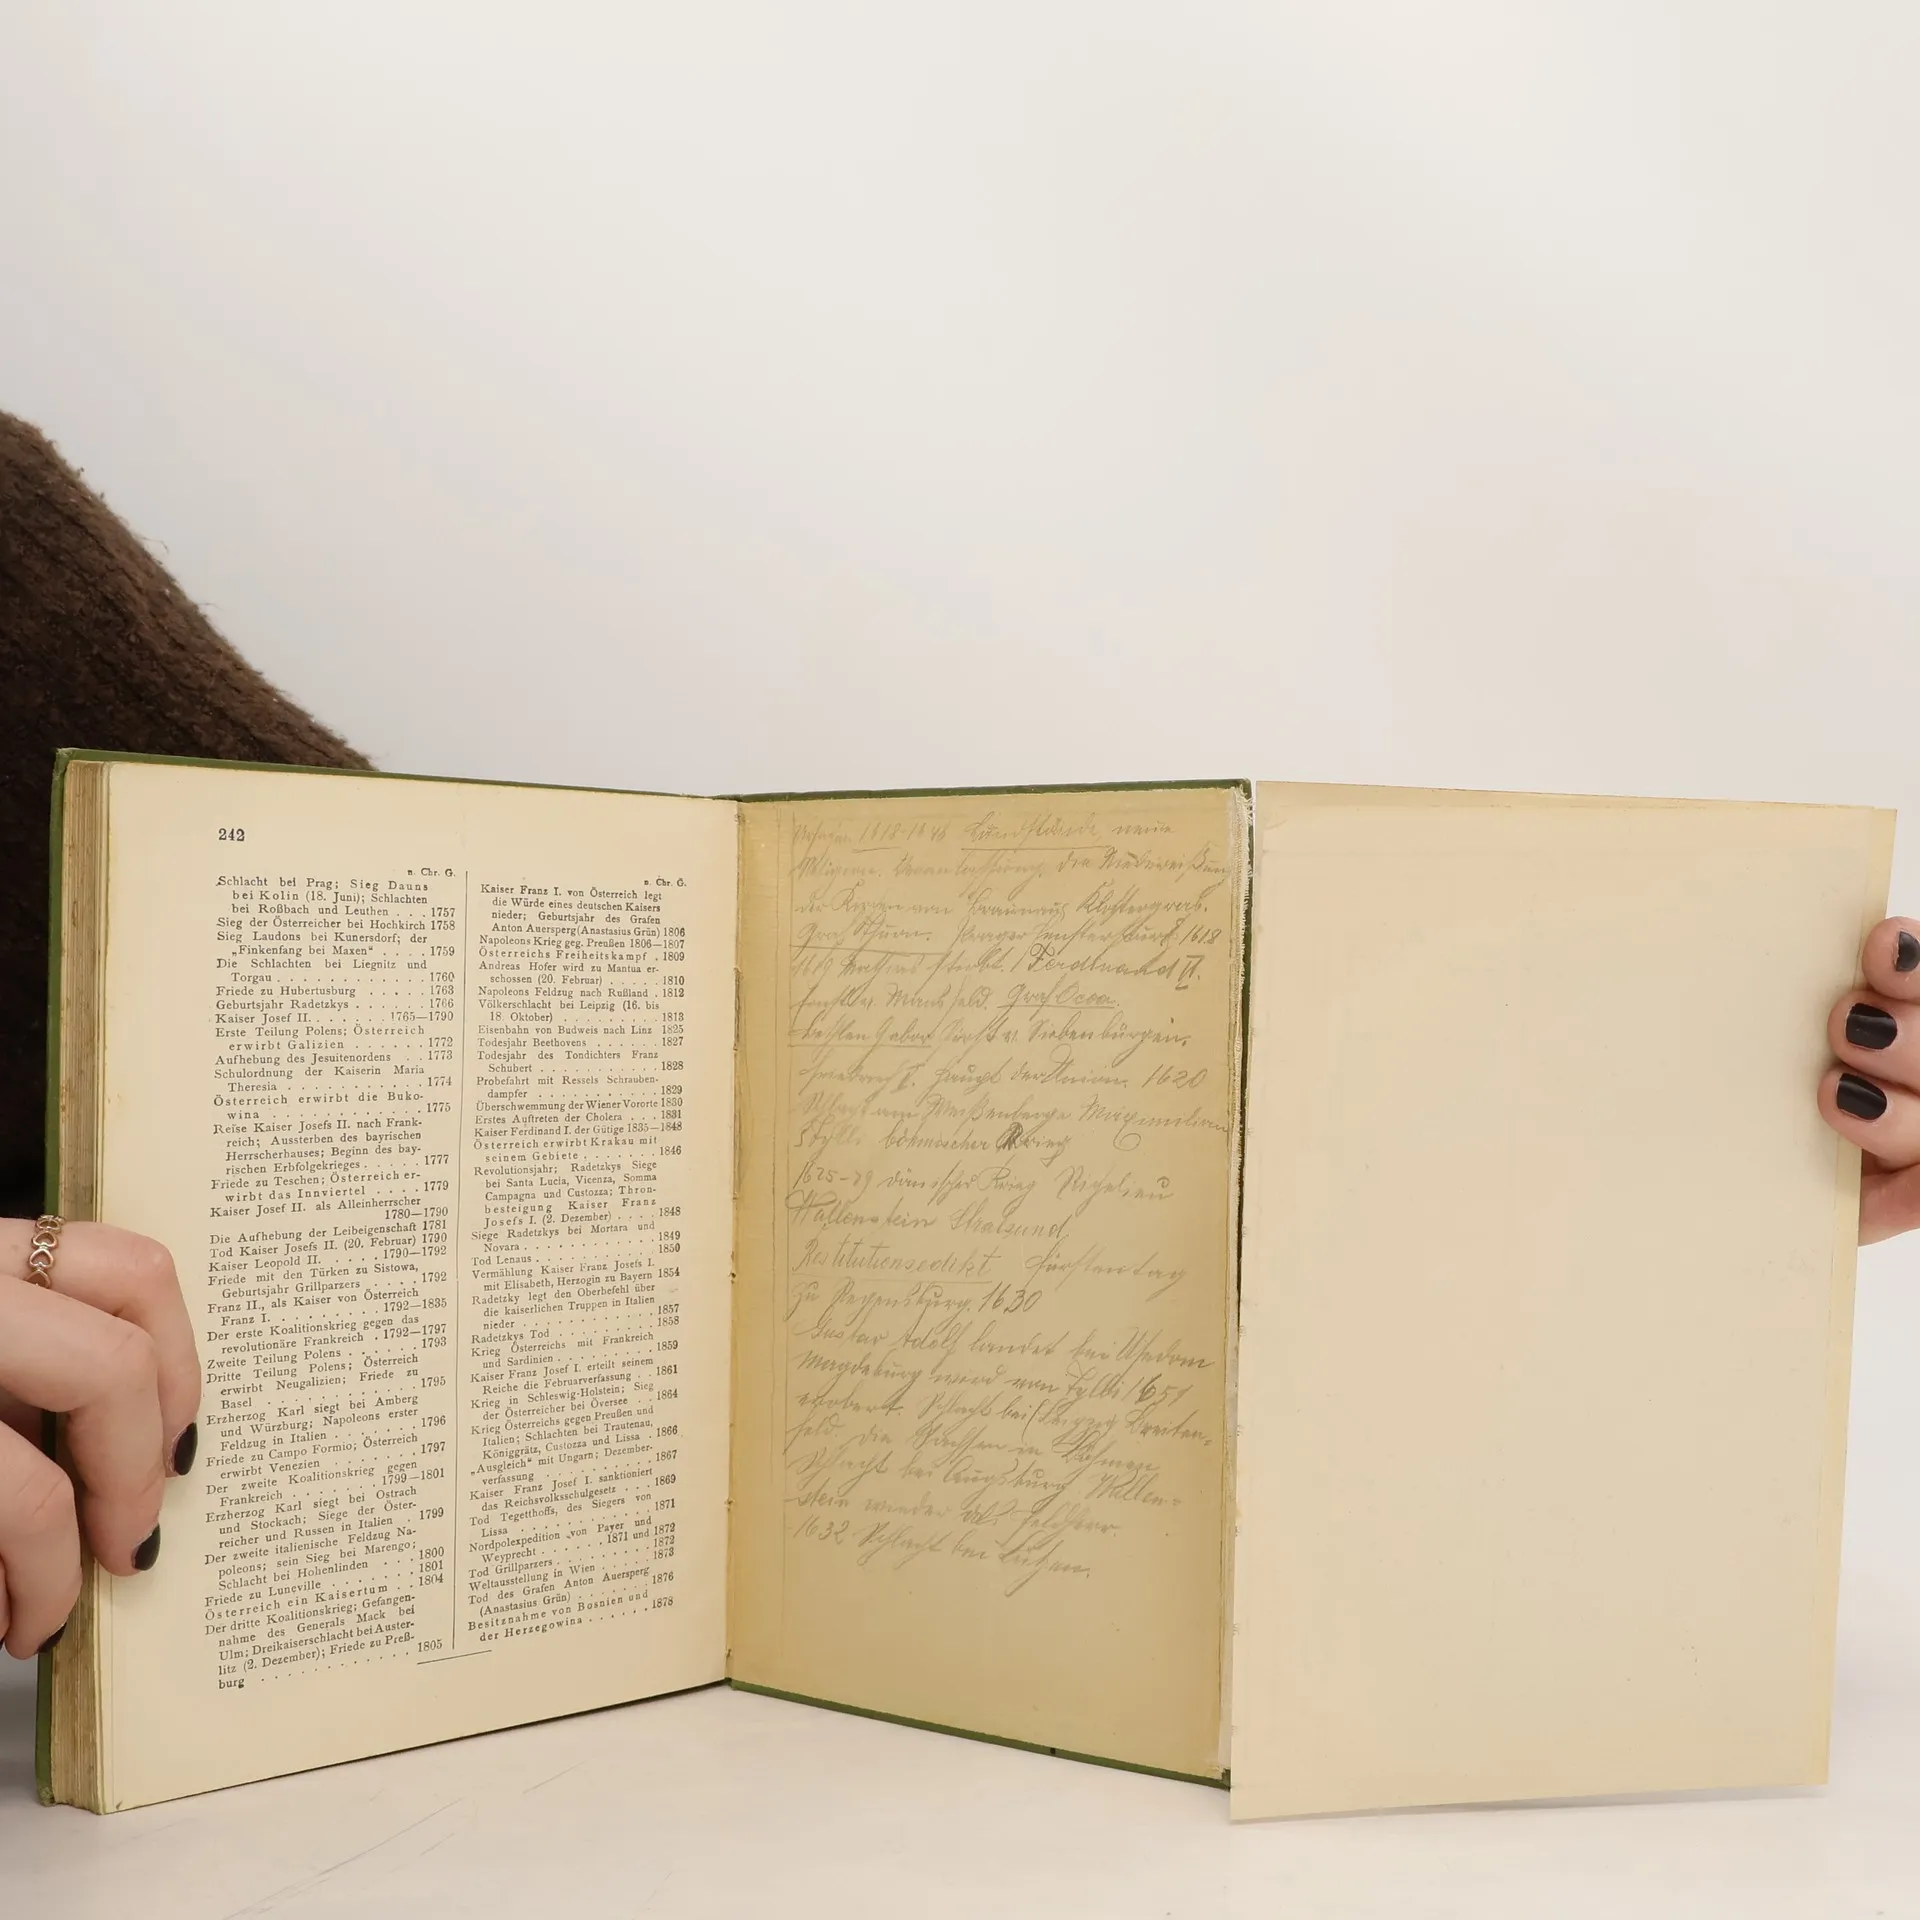 242
n. Chr. G.
Schlacht bei Prag; Sieg Dauns
bei Kolin (18. Juni); Schlachten
bei Roßbach und Leuthen . . . 1757
Sieg der Österreicher bei Hochkirch 1758
Sieg Laudons bei Kunersdorf; der
„Finkenfang bei Maxen“ . . . . 1759
Die Schlachten bei Liegnitz und
Torgau . . . . . . . . . . . 1760
Friede zu Hubertusburg . . . . . 1763
Geburtsjahr Radetzkys . . . . . 1766
Kaiser Josef II. . . . . . . 1765—1790
Erste Teilung Polens; Österreich
erwirbt Galizien . . . . . . 1772
Aufhebung des Jesuitenordens . . 1773
Schulordnung der Kaiserin Maria
Theresia . . . . . . . . . . 1774
Österreich erwirbt die Buko-
wina . . . . . . . . . . . . 1775
Reise Kaiser Josefs II. nach Frank-
reich; Aussterben des bayrischen
Herrscherhauses; Beginn des bay-
rischen Erbfolgekrieges . . . . . 1777
Friede zu Teschen; Österreich er-
wirbt das Innviertel . . . . 1779
Kaiser Josef II. als Alleinherrscher
1780—1790
Die Aufhebung der Leibeigenschaft 1781
Tod Kaiser Josefs II. (20. Februar) 1790
Kaiser Leopold II. . . . . 1790—1792
Friede mit den Türken zu Sistowa,
Geburtsjahr Grillparzers . . . . 1792
Franz II., als Kaiser von Österreich
Franz I. . . . . . . . . 1792—1835
Der erste Koalitionskrieg gegen das
revolutionäre Frankreich . 1792—1797
Zweite Teilung Polens . . . . . . 1793
Dritte Teilung Polens; Österreich
erwirbt Neugalizien; Friede zu
Basel . . . . . . . . . . . . 1795
Erzherzog Karl siegt bei Amberg
und Würzburg; Napoleons erster
Feldzug in Italien . . . . . . 1796
Friede zu Campo Formio; Österreich
erwirbt Venezien . . . . . . 1797
Der zweite Koalitionskrieg gegen
Frankreich . . . . . . . 1799—1801
Erzherzog Karl siegt bei Ostrach
und Stockach; Siege der Öster-
reicher und Russen in Italien . 1799
Der zweite italienische Feldzug Na-
poleons; sein Sieg bei Marengo;
Schlacht bei Hohenlinden . . . 1800
Friede zu Luneville . . . . . . . 1801
Österreich ein Kaisertum . . 1804
Der dritte Koalitionskrieg; Gefangen-
nahme des Generals Mack bei
Ulm; Dreikaiserschlacht bei Auster-
litz (2. Dezember); Friede zu Preß-
burg . . . . . . . . . . . . 1805
n. Chr. G.
Kaiser Franz I. von Österreich legt
die Würde eines deutschen Kaisers
nieder; Geburtsjahr des Grafen
Anton Auersperg (Anastasius Grün) 1806
Napoleons Krieg geg. Preußen 1806—1807
Österreichs Freiheitskampf . 1809
Andreas Hofer wird zu Mantua er-
schossen (20. Februar) . . . . . 1810
Napoleons Feldzug nach Rußland . 1812
Völkerschlacht bei Leipzig (16. bis
18. Oktober) . . . . . . . . . 1813
Eisenbahn von Budweis nach Linz 1825
Todesjahr Beethovens . . . . . . 1827
Todesjahr des Tondichters Franz
Schubert . . . . . . . . . . . 1828
Probefahrt mit Ressels Schrauben-
dampfer . . . . . . . . . . . 1829
Überschwemmung der Wiener Vororte 1830
Erstes Auftreten der Cholera . . . 1831
Kaiser Ferdinand I. der Gütige 1835—1848
Österreich erwirbt Krakau mit
seinem Gebiete . . . . . . . 1846
Revolutionsjahr; Radetzkys Siege
bei Santa Lucia, Vicenza, Somma
Campagna und Custozza; Thron-
besteigung Kaiser Franz
Josefs I. (2. Dezember) . . . . 1848
Siege Radetzkys bei Mortara und
Novara . . . . . . . . . . . . 1849
Tod Lenaus . . . . . . . . . . . 1850
Vermählung Kaiser Franz Josefs I.
mit Elisabeth, Herzogin zu Bayern 1854
Radetzky legt den Oberbefehl über
die kaiserlichen Truppen in Italien
nieder . . . . . . . . . . . . 1857
Radetzkys Tod . . . . . . . . . 1858
Krieg Österreichs mit Frankreich
und Sardinien . . . . . . . . . 1859
Kaiser Franz Josef I. erteilt seinem
Reiche die Februarverfassung . . 1861
Krieg in Schleswig-Holstein; Sieg
der Österreicher bei Oversee . . 1864
Krieg Österreichs gegen Preußen und
Italien; Schlachten bei Trautenau,
Königgrätz, Custozza und Lissa . 1866
„Ausgleich“ mit Ungarn; Dezember-
verfassung . . . . . . . . . . 1867
Kaiser Franz Josef I. sanktioniert
das Reichsvolksschulgesetz . . . 1869
Tod Tegetthoffs, des Siegers von
Lissa . . . . . . . . . . . . 1871
Nordpolexpedition von Payer und
Weyprecht . . . . . . 1871 und 1872
Tod Grillparzers . . . . . . . . 1872
Weltausstellung in Wien . . . . . 1873
Tod des Grafen Anton Auersperg
(Anastasius Grün) . . . . . . . 1876
Besitznahme von Bosnien und
der Herzegowina . . . . . . 1878
1618-1648
Religion. die
der Kirchen von Braunau, Klostergrab.
Graf Thurn. Prager Fenstersturz 1618
1619 Mathias stirbt. Ferdinand II.
Ernst v. Mansfeld.
Bethlen Gabor Fürst v. Siebenbürgen.
Friedrich V. Haupt der Union. 1620
Schlacht am Weißenberge Maximilian
Tylli böhmischer Krieg
1625-29 dänischer Krieg Richelieu
Wallenstein Stralsund
Restitutionsedikt Fürstentag
zu Regensburg. 1630
Gustav Adolf landet bei Usedom
Magdeburg wird von
erobert. Schlacht bei Leipzig Breiten=
feld. Die Sachsen in Böhmen
Schlacht bei Augsburg Wallen=
stein wieder als Feldherr.
1632 Schlacht bei Lützen.